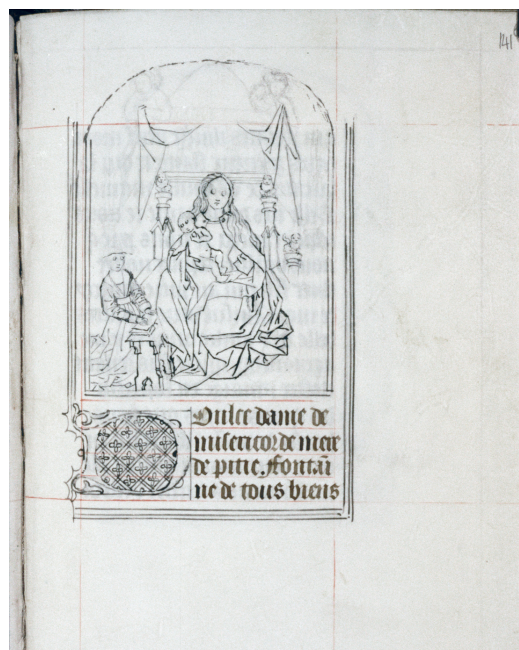 141
Dulce dame de
misericorde mere
de pitie. ffontāi
ne de tous biens